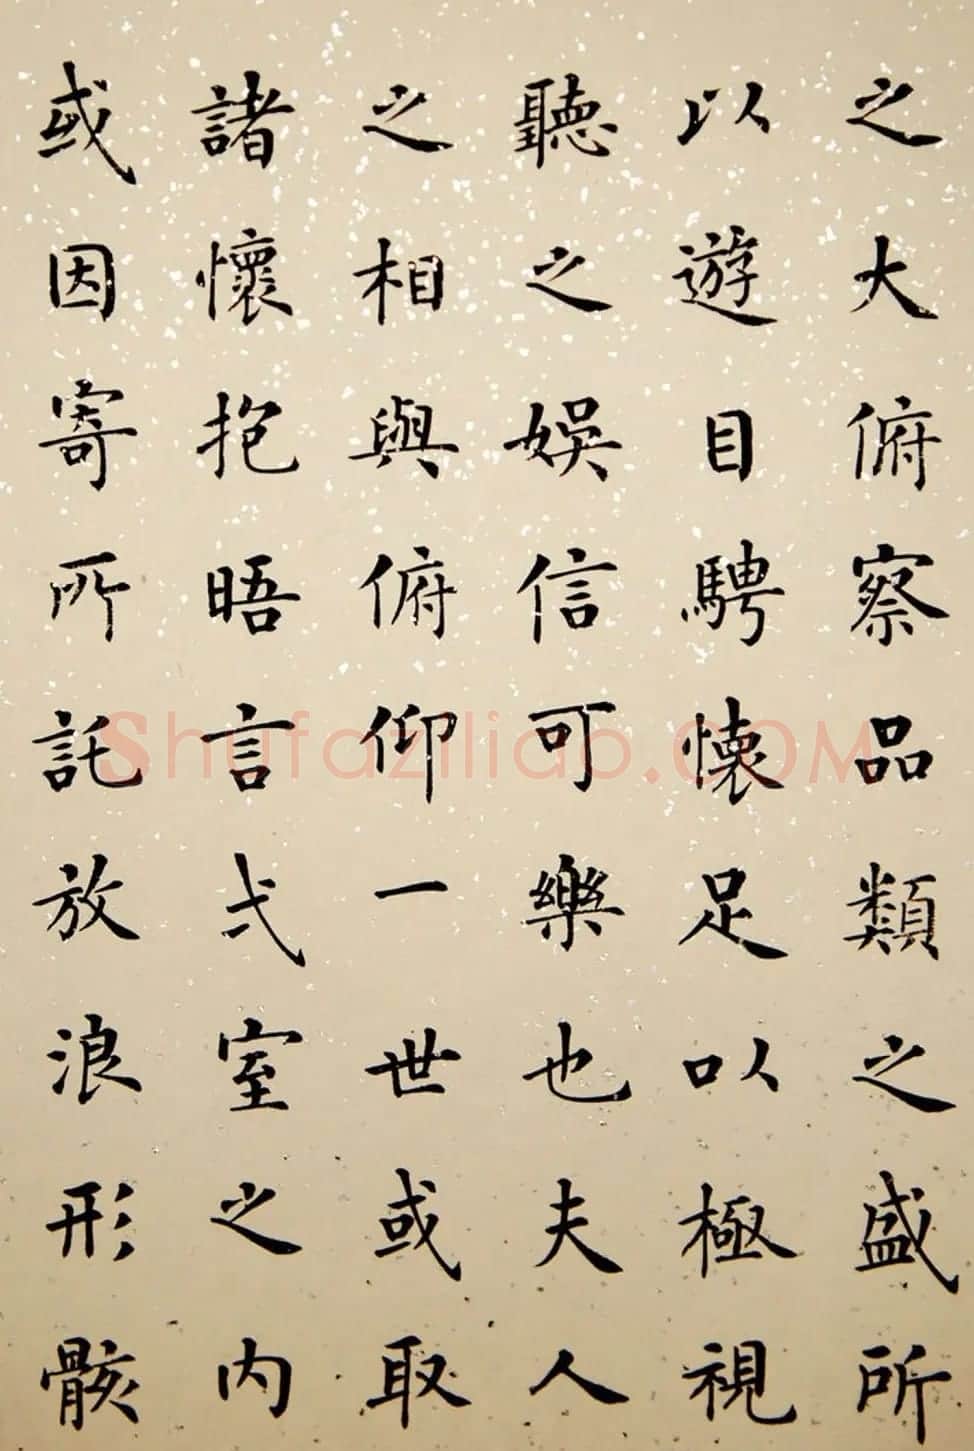 之大俯察品類之盛所
以遊目騁懐足以極視
聽之娛信可樂也夫人
之相與俯仰一世或取
諸懷抱晤言弌室之内
或因寄所託放浪形骸
Shufaziliao.COM